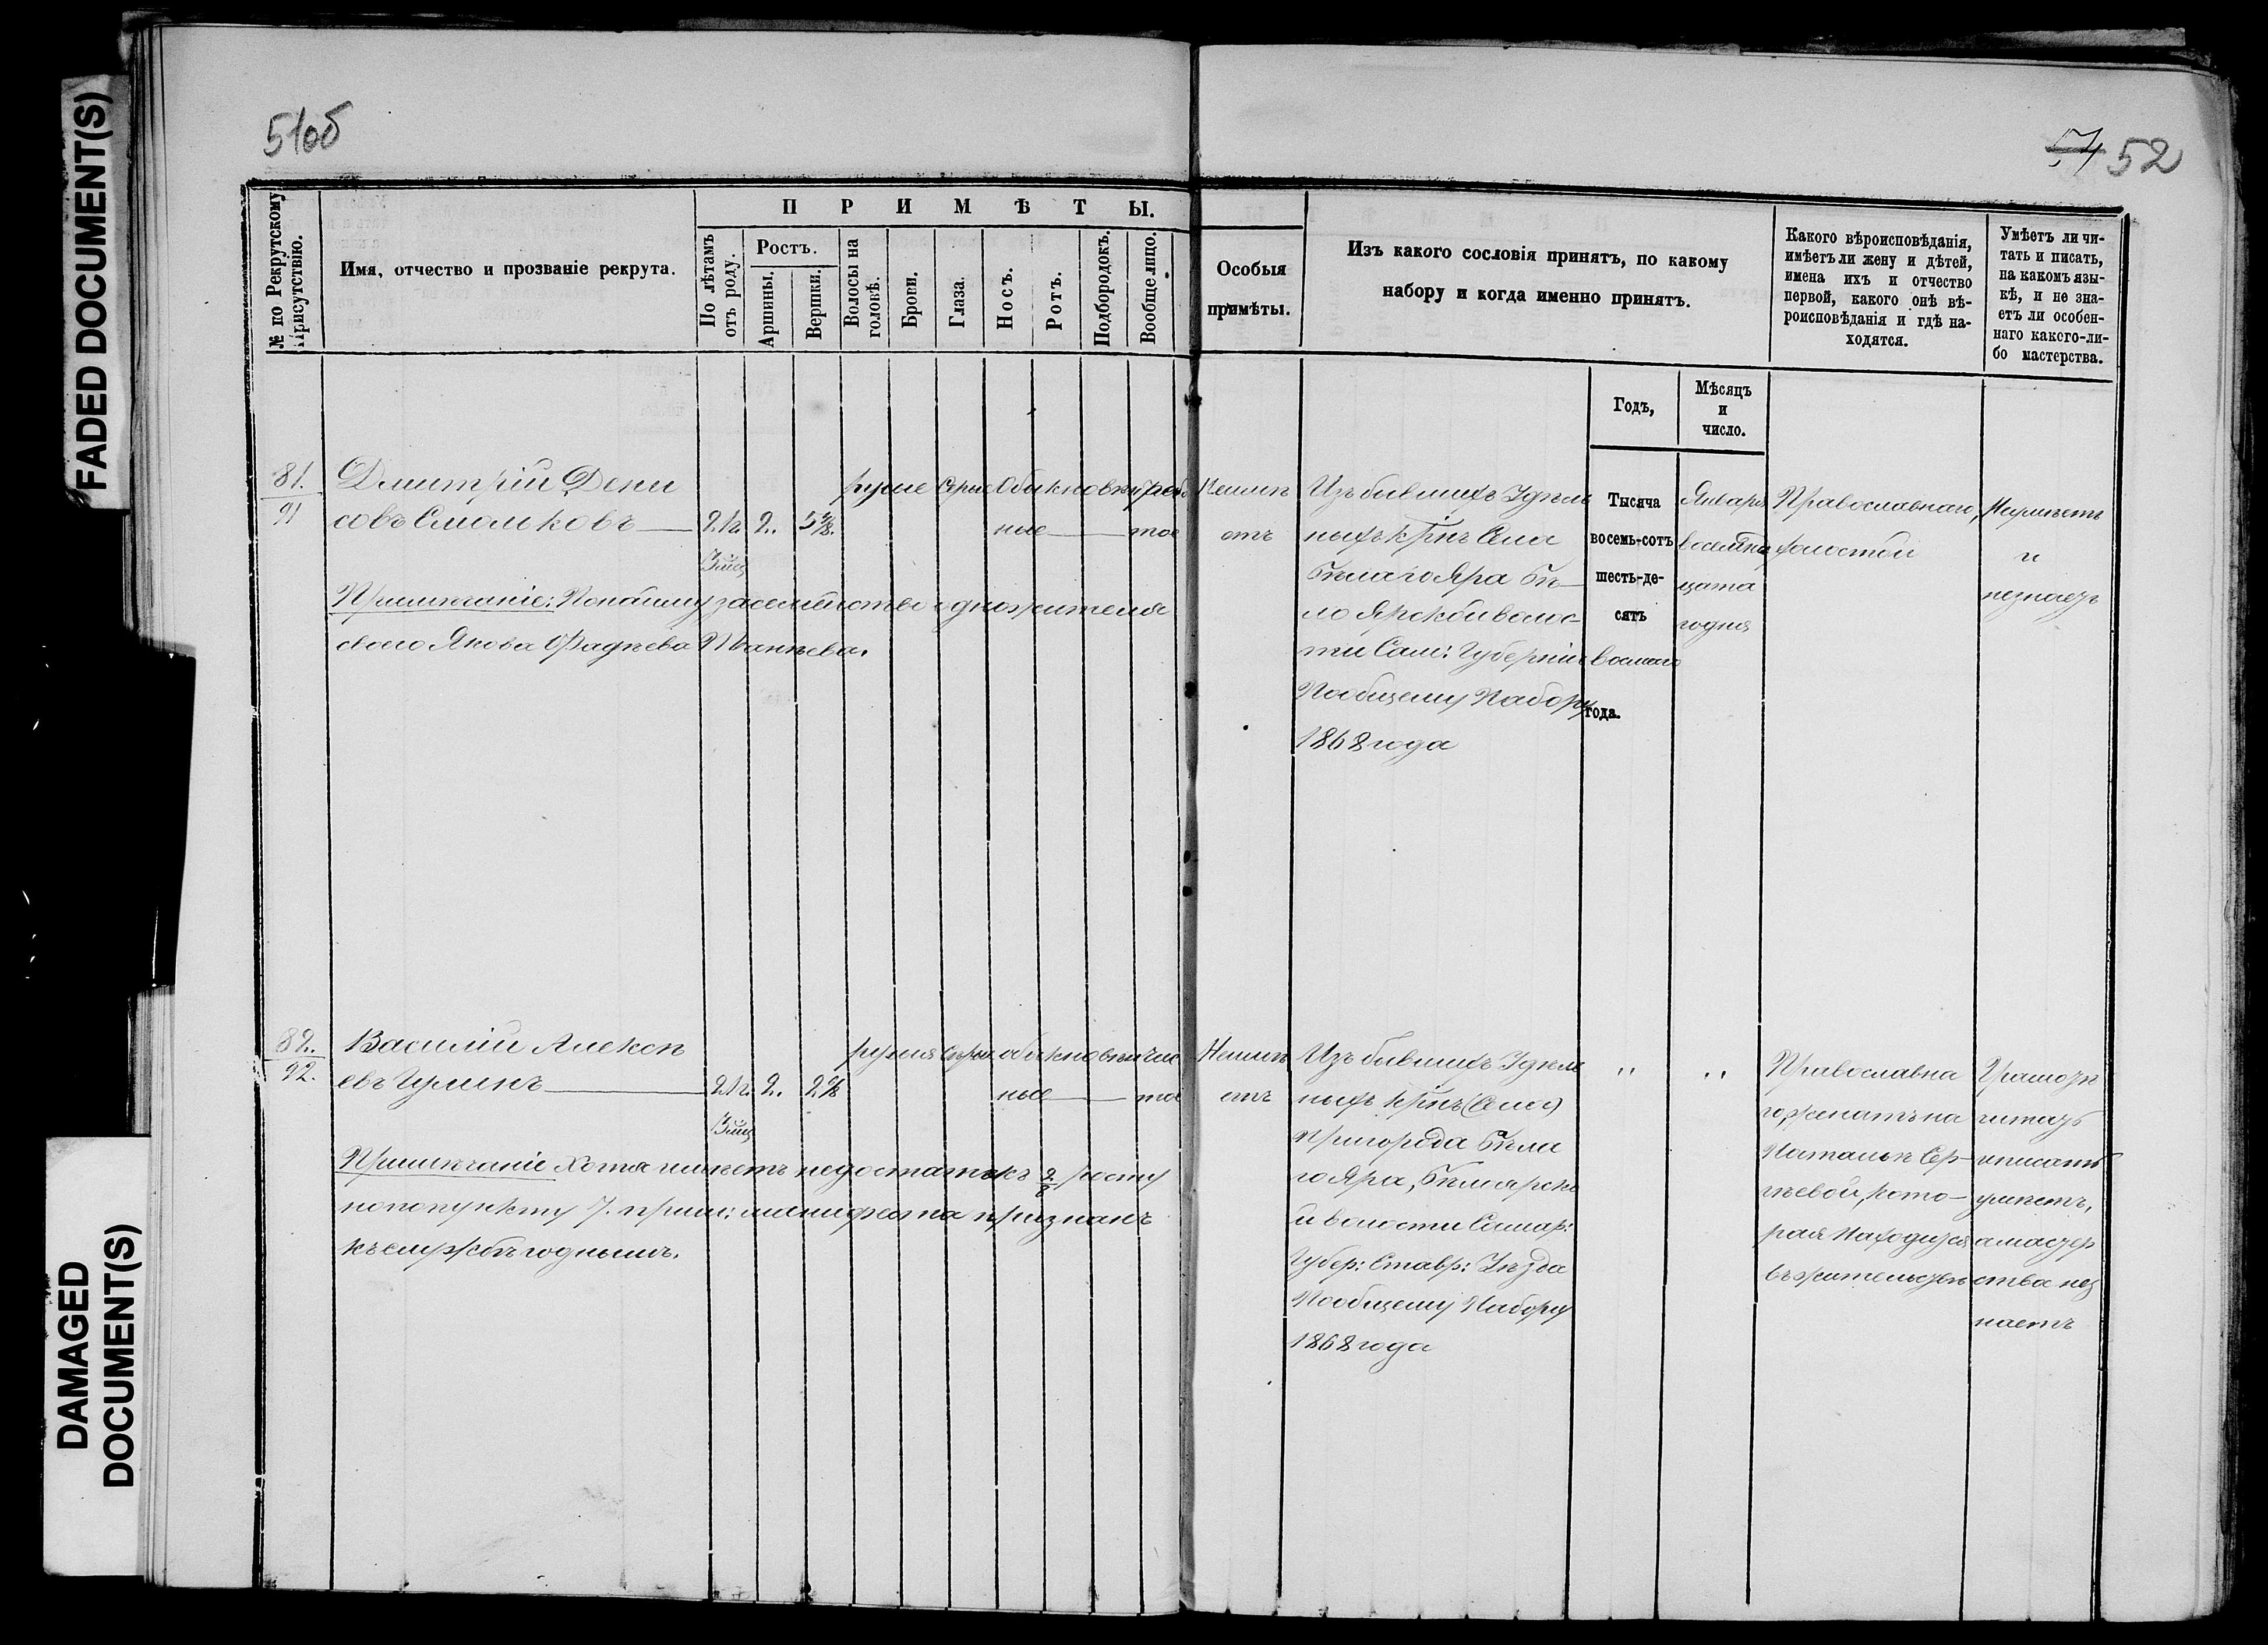 FADED DOCUMENT(S)
DAMAGED
DOCUMENT(S)
51об
52
№ по Рекрутскому
Присутствію.
Имя, отчество и прозваніе рекрута.
ПРИМѢТЫ.
По лѣтамъ
отъ роду.
Ростъ.
Аршины.
Вершки.
Волосы на
головѣ.
Брови.
Глаза.
Носъ.
Ротъ.
Подбородокъ.
Вообще лицо.
Особыя
примѣты.
Изъ какого сословія принятъ, по какому
набору и когда именно принятъ.
Какого вѣроисповѣданія,
имѣетъ ли жену и дѣтей,
имена ихъ и отчество
первой, какого онѣ вѣ-
роисповѣданія и гдѣ на-
ходятся.
Умѣетъ ли чи-
тать и писать,
на какомъ язы-
кѣ, и не зна-
етъ ли особен-
наго какого-ли-
бо мастерства.
Годъ,
Мѣсяцъ
и
число.
81.
91
Дмитрій Дени
совъ Смолковъ
21г.
2.
5 2/8.
русые
Серые
Обыкновен
ные
рябо
тое
Неимѣ
етъ
Изъ бывшихъ Удѣль
ныхъ крнъ Села
Бѣлаго Яра Бѣ-
ло Ярской волос-
ти Сам: Губерніи
Пообщему Набору
1868 года
Тысяча
восемь-сотъ
шесть-де-
сятъ
восьмаго
года.
Января
восемна
цата
годня
Православнаго,
холостой
Неумѣетъ
и
незнаетъ
Примѣчаніе: Понайму засемейство одножителя
своего Якова Фадѣева Панѣева.
82.
92.
Василій Алексѣ
евъ Гулинъ
21г.
2.
2 2/8
русыя
Серые
обыкновен
ные
чис
тое
Неимѣ
етъ
Изъ бывшихъ Удѣль
ныхъ крнъ (Села)
Пригорода Бѣла
го Яра, Бѣлоярско
й волости Самар:
Губер: Ставр: Уѣзда
Пообщему Набору
1868 года
"
"
Православна
го, женатъ на
Натальѣ Сер-
гѣевой, кото-
рая Находится
въ жительствѣ
Грамотѣ
читать
иписать
умѣетъ,
амастер
ства нез
наетъ
Примѣчаніе Хотя иимѣетъ недостатокъ 2/8 росту
нопопункту 7. прим: манифеста признанъ
къ службѣ годнымъ.